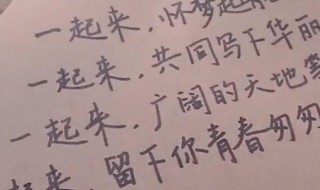 一起来,怀梦起
一起来,共同写下华丽
一起来,广阔的天地等
起来,留下你青春匆匆